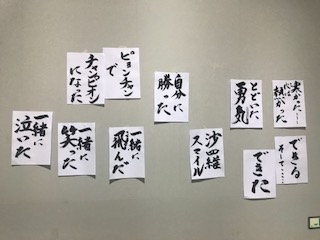 寒かった……
熱かった。
とどいた
勇気
自分に
勝った
ピョンチャン
で
チャンピオン
になった
できる
そして……
できた
沙羅
スマイル
一緒に
飛んだ
一緒に
笑った
一緒に
泣いた